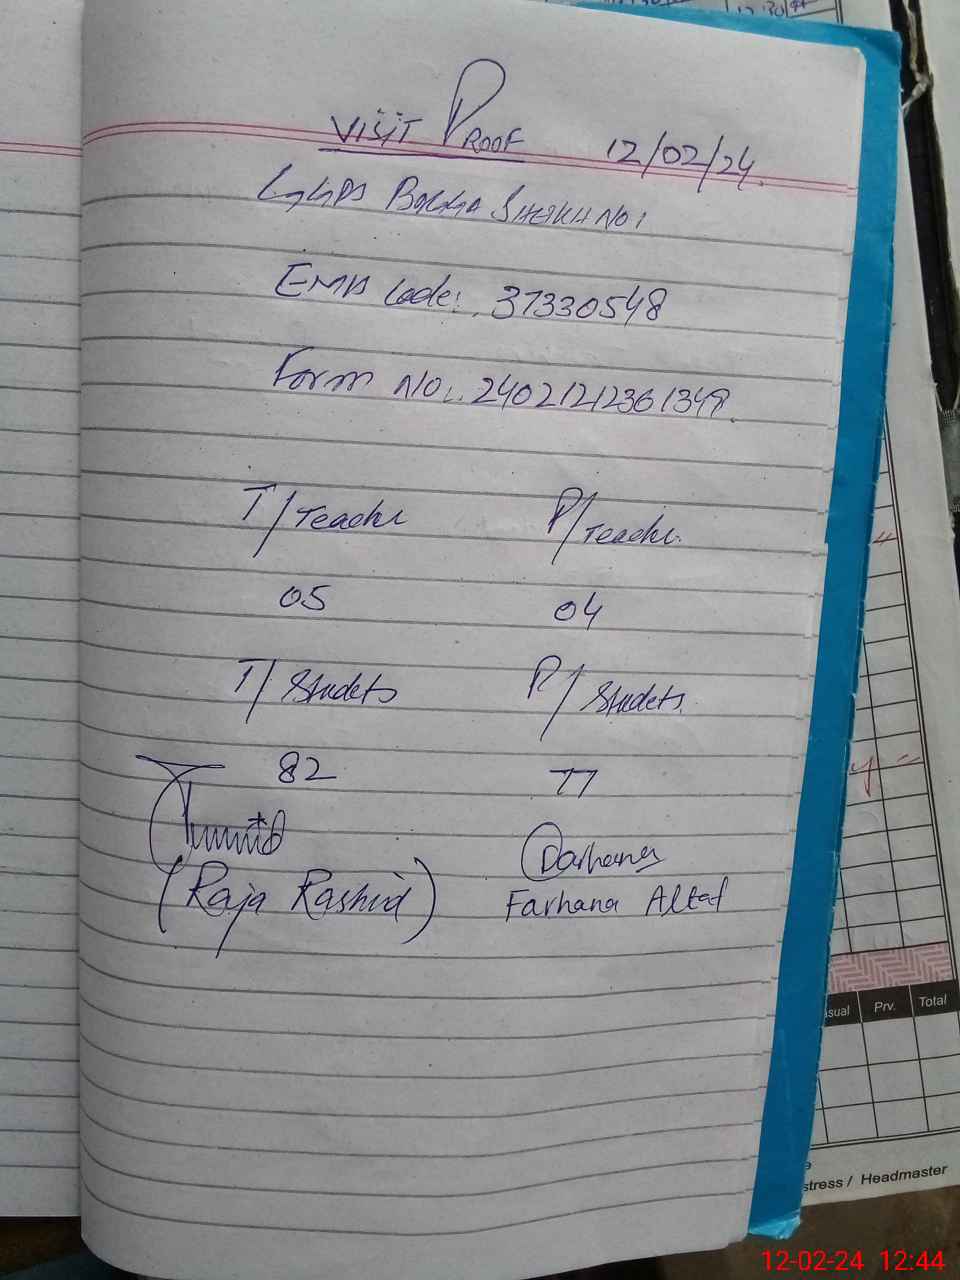 VISIT PROOF 12/02/24
GGPS BAGGA SHEIKH NO 1
EMIS Code: 37330548
Form NO: 24021212361348
T/Teacher P/Teacher
05 04
T/Studets P/Studets
82 77
Farhana
(Raja Rashid) Farhana Altaf
sual Prv. Total
stress / Headmaster
12-02-24 12:44